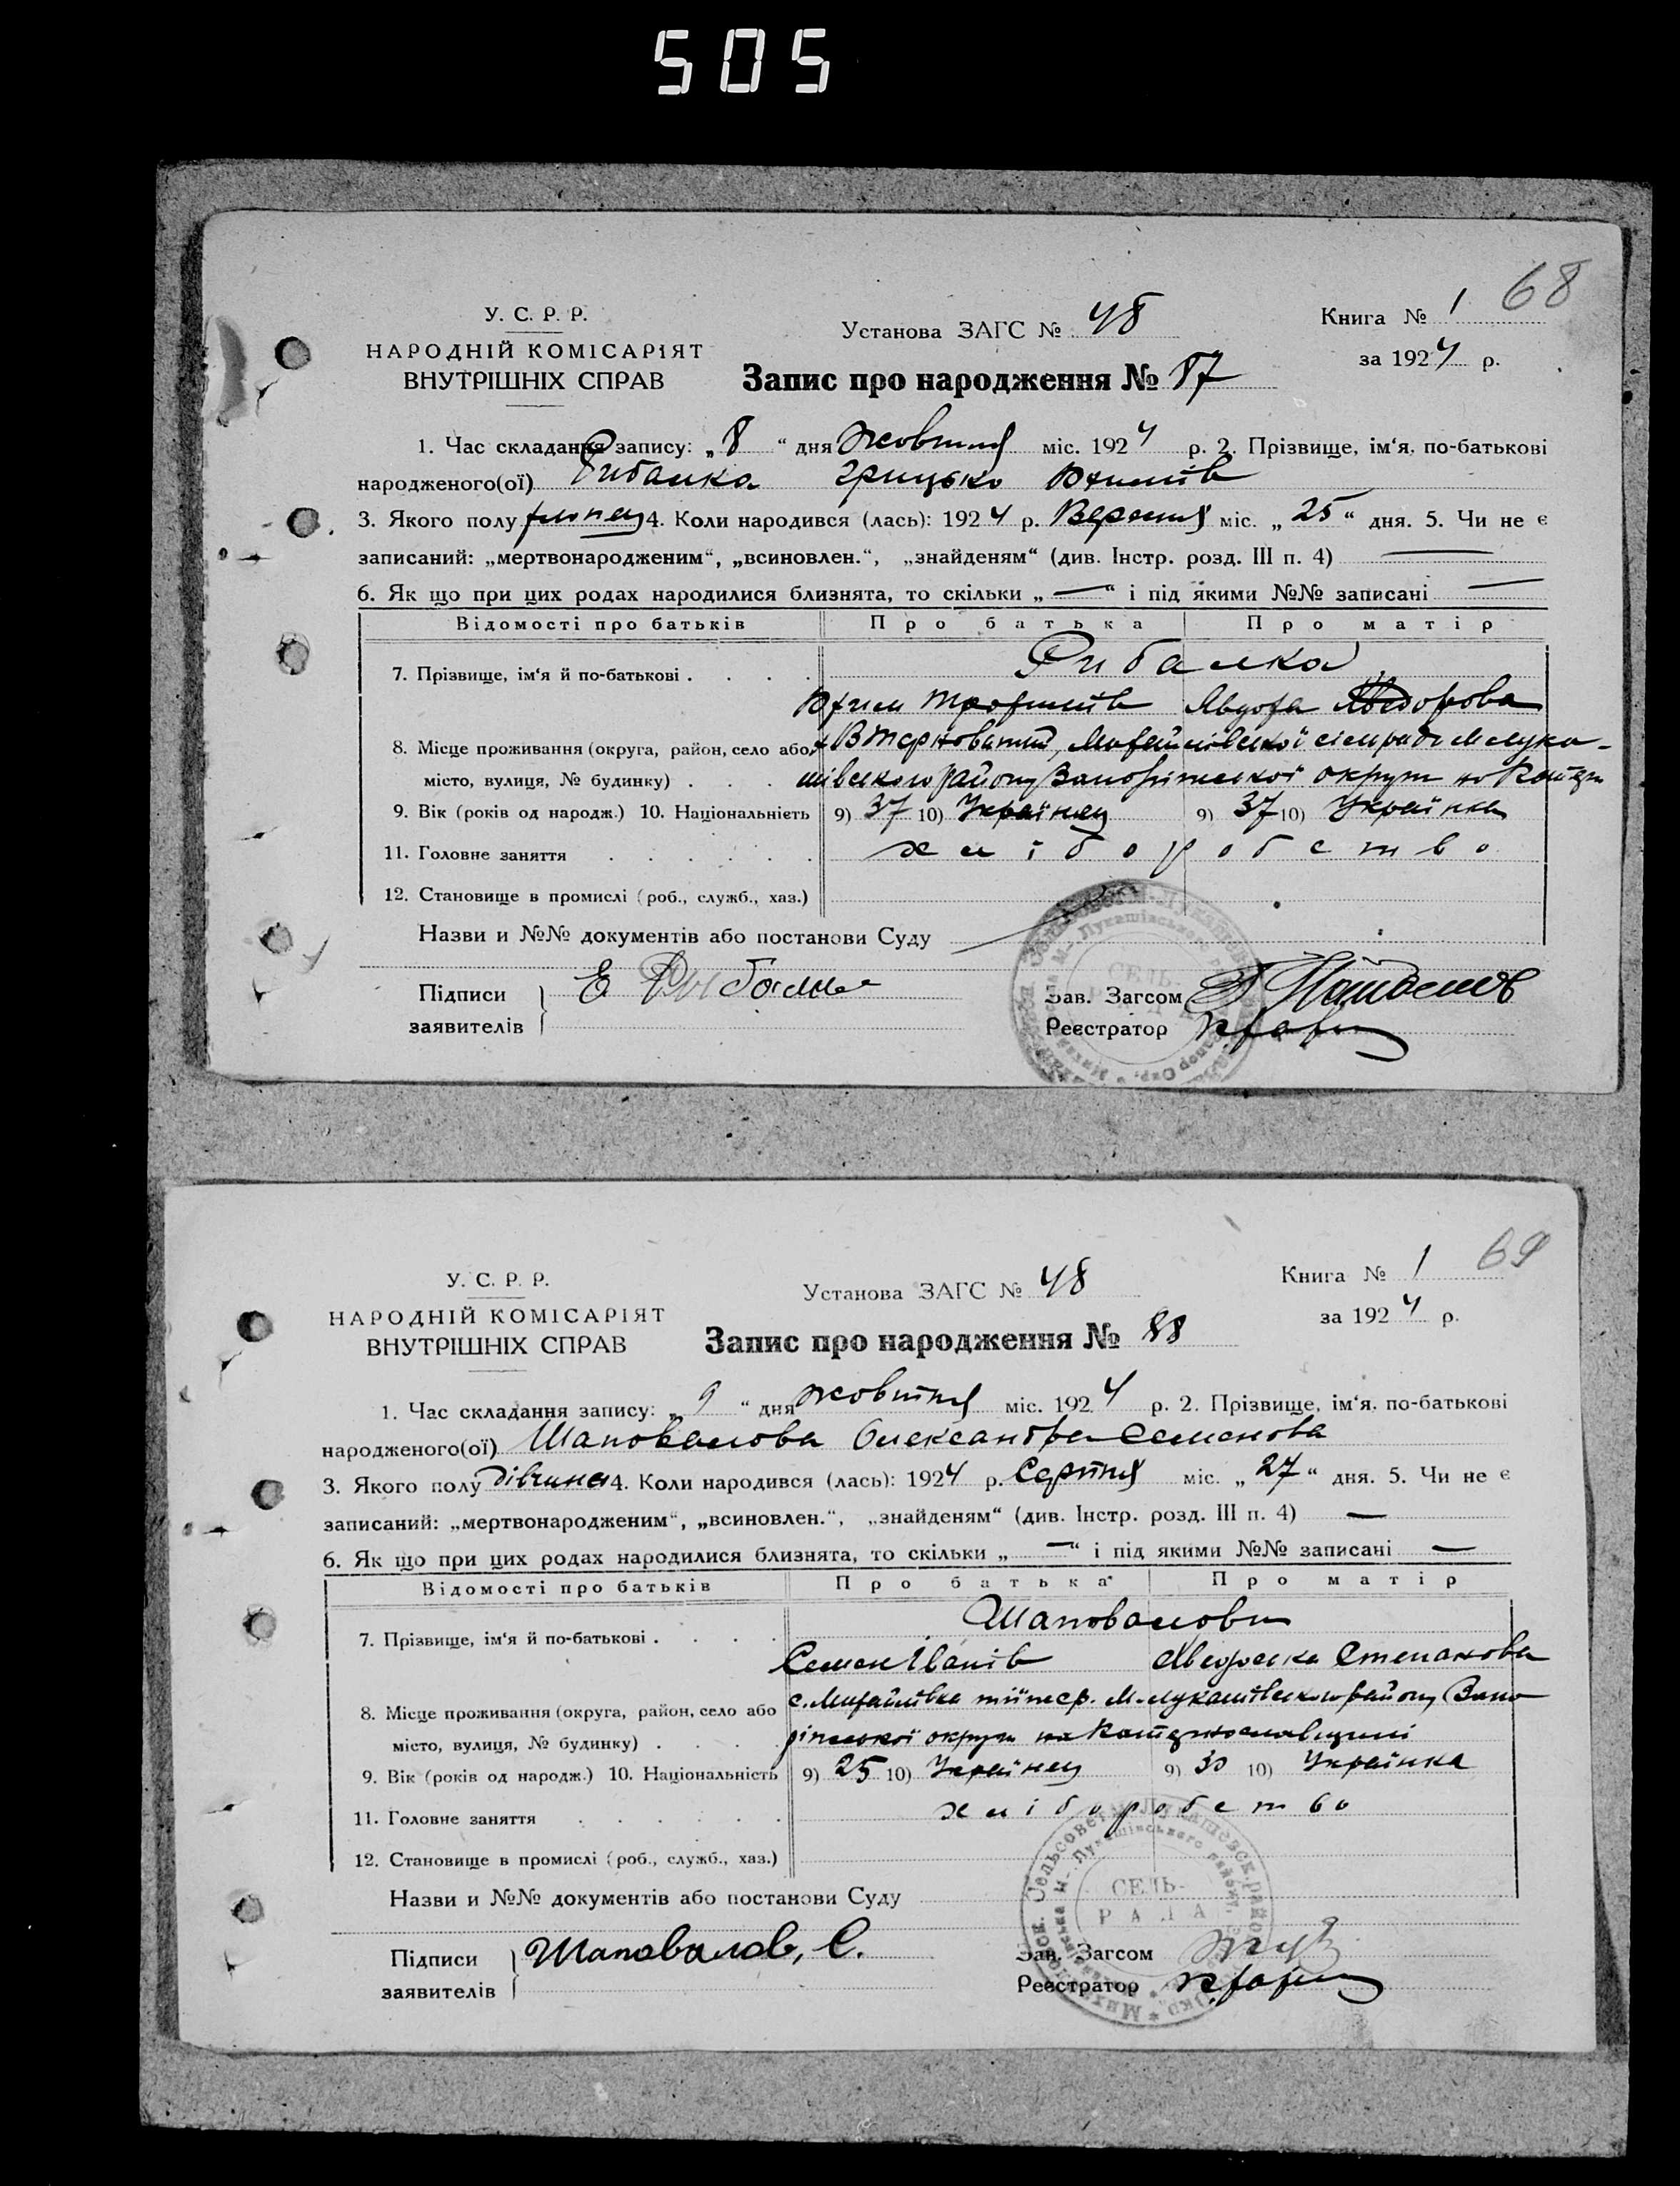 505
68
У. С. Р. Р.
НАРОДНІЙ КОМІСАРІЯТ
ВНУТРІШНІХ СПРАВ
Установа ЗАГС № 48
Книга № 1
за 1924 р.
Запис про народження № 87
1. Час складання запису: „8“ дня жовтня міс. 1924 р. 2. Прізвище, ім‘я, по-батькові
народженого(ої) Рибалка Грицько
3. Якого полу хлопець 4. Коли народився (лась): 1924 р. Вересня міс. „25“ дня. 5. Чи не є
записаний: „мертвонародженим“, „всиновлен.“, „знайденям“ (див. Інстр. розд. III п. 4) —
6. Як що при цих родах народилися близнята, то скільки „—“ і під якими №№ записані —
Відомості про батьків Про батька Про матір
7. Прізвище, ім‘я й по-батькові . . . . Рибалка
Трохимів Явдоха Хведорова
8. Місце проживання (округа, район, село або Михайлівської сільради М Лука-
місто, вулиця, № будинку) . . . шівського району Запоріжської округи на
9. Вік (років од народж.) 10. Національність 9) 37 10) Українец 9) 37 10) Українка
11. Головне заняття . . . . . . хліборобство
12. Становище в промислі (роб., служб., хаз.)
Назви и №№ документів або постанови Суду
Підписи заявителів Е Рыбалка
Зав. Загсом
Реєстратор
СЕЛЬ-
69
У. С. Р. Р.
НАРОДНІЙ КОМІСАРІЯТ
ВНУТРІШНІХ СПРАВ
Установа ЗАГС № 48
Книга № 1
за 1924 р.
Запис про народження № 88
1. Час складання запису: „9“ дня жовтня міс. 1924 р. 2. Прізвище, ім‘я, по-батькові
народженого(ої) Шаповалова Олександра Семенова
3. Якого полу дівчина 4. Коли народився (лась): 1924 р. Серпня міс. „27“ дня. 5. Чи не є
записаний: „мертвонародженим“, „всиновлен.“, „знайденям“ (див. Інстр. розд. III п. 4) —
6. Як що при цих родах народилися близнята, то скільки „—“ і під якими №№ записані —
Відомості про батьків Про батька Про матір
7. Прізвище, ім‘я й по-батькові . . . . Шаповалови
Семен Іванів Степанова
8. Місце проживання (округа, район, село або с. Михайлівка М-Лукашівського району Запо
місто, вулиця, № будинку) . . . . ріжської округи на Катеринославщині
9. Вік (років од народж.) 10. Національність 9) 25 10) Українец 9) 30 10) Українка
11. Головне заняття . . . . . . хліборобство
12. Становище в промислі (роб., служб., хаз.)
Назви и №№ документів або постанови Суду
Підписи заявителів Шаповалов, С.
Зав. Загсом
Реєстратор
СЕЛЬ-
РАДА